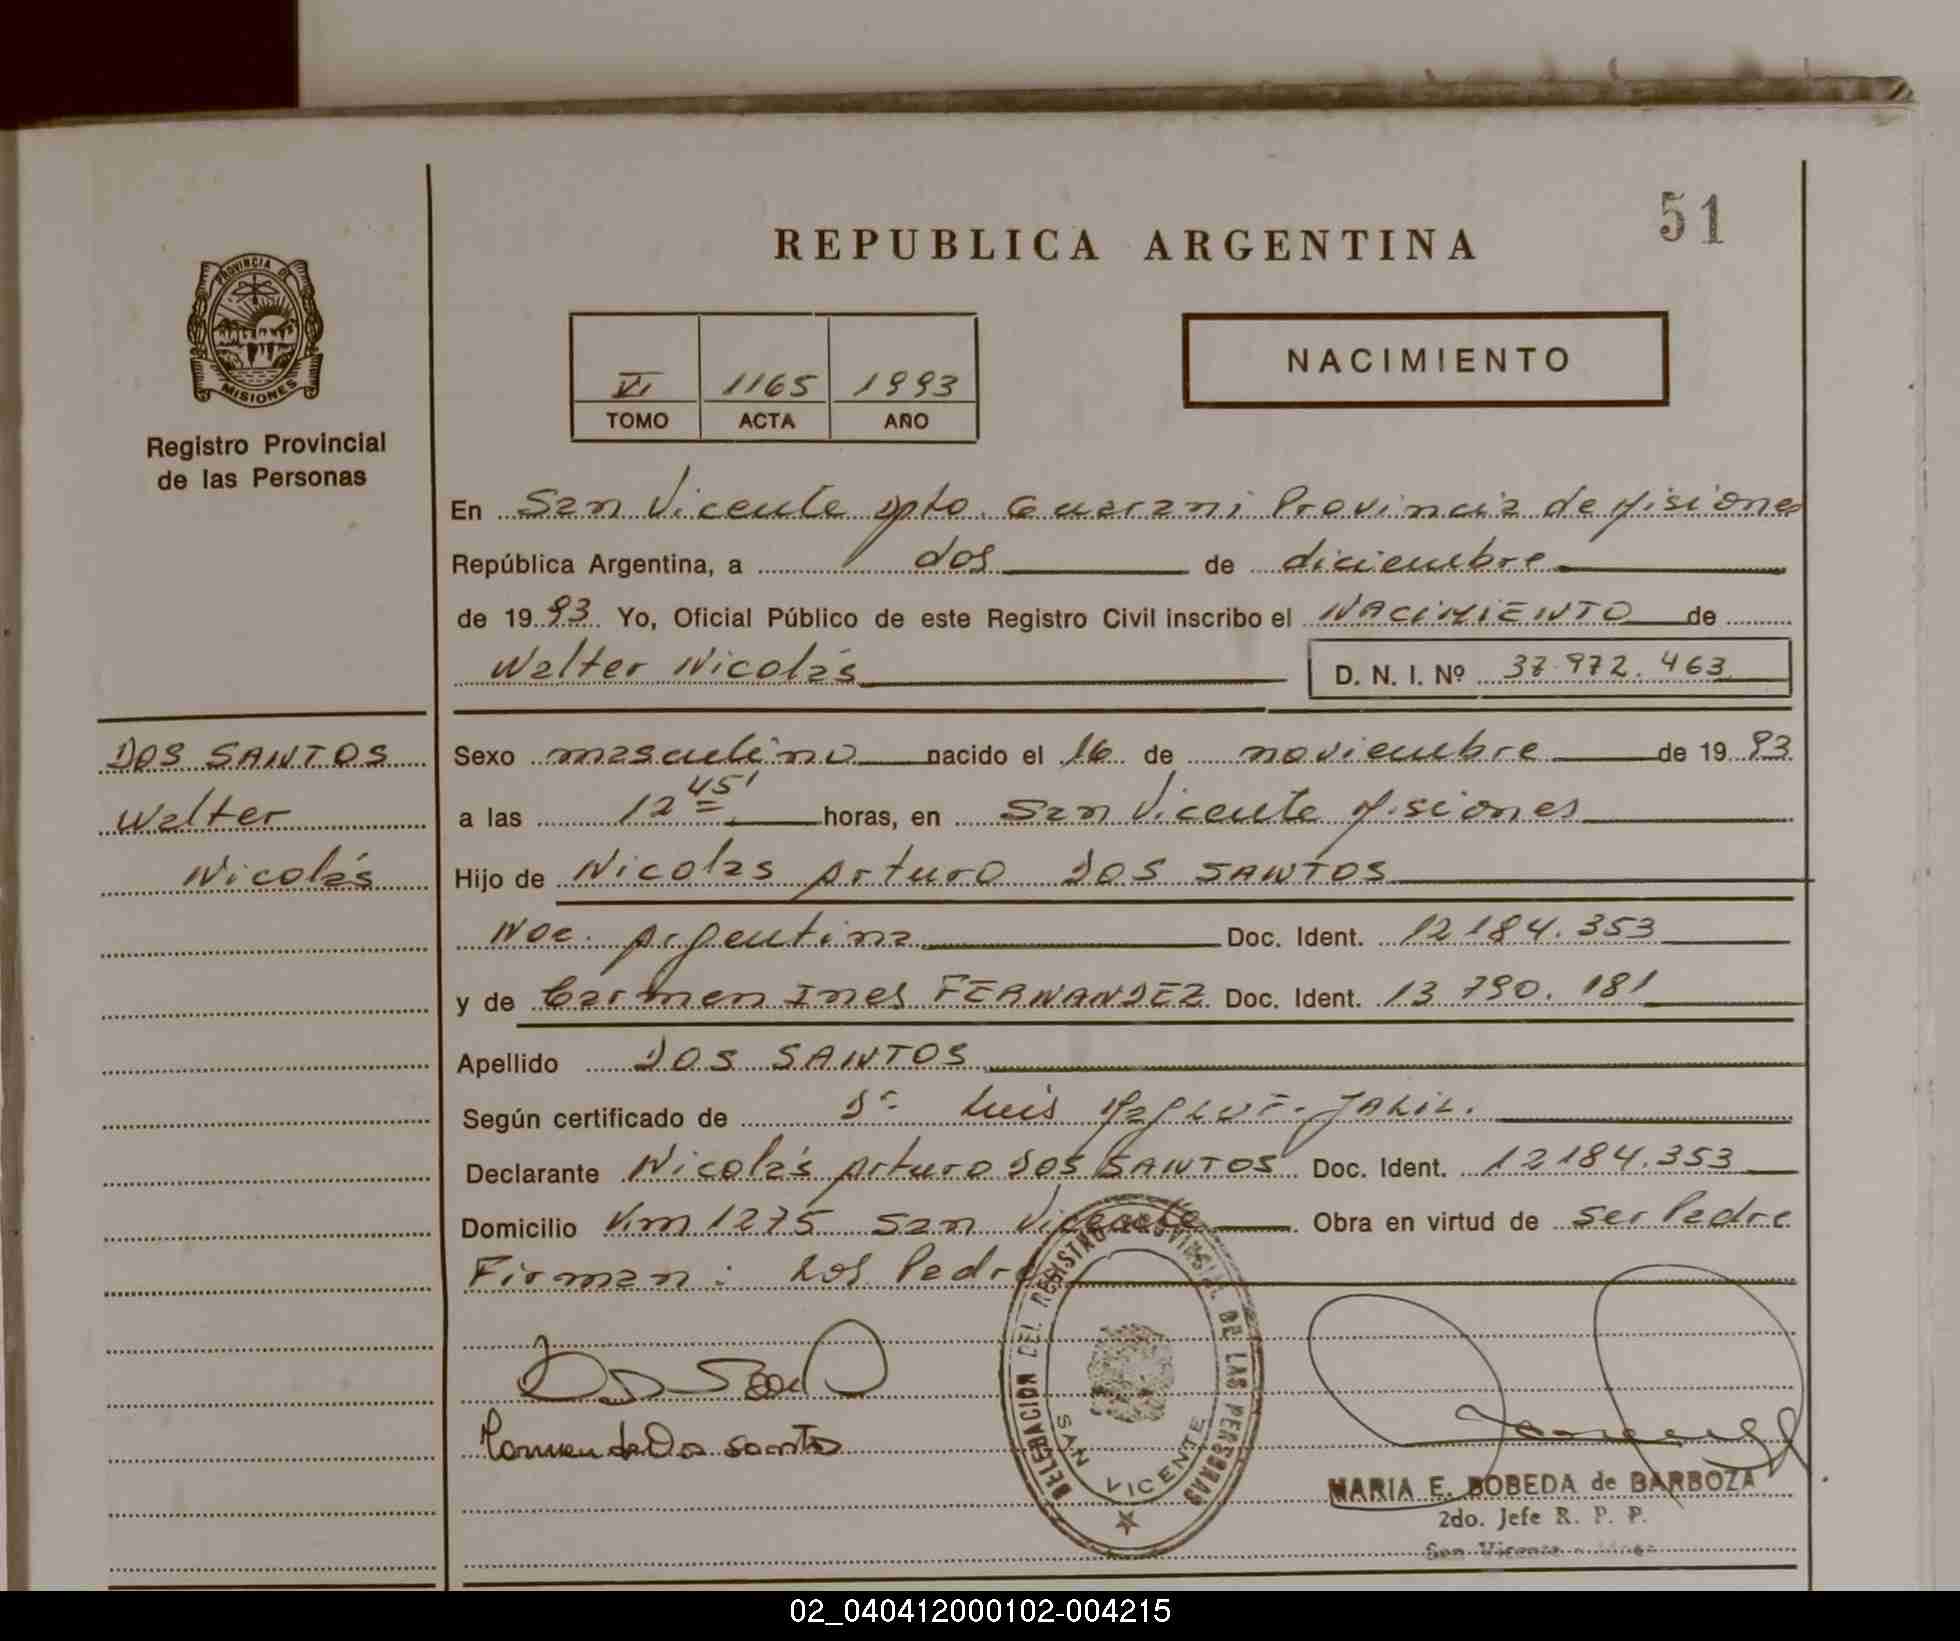 51
REPUBLICA ARGENTINA
PROVINCIA DE
MISIONES
Registro Provincial
de las Personas
VI 1165 1993
TOMO ACTA AÑO
NACIMIENTO
En San Vicente Dpto. Guarani Provincia de Misiones
República Argentina, a dos de diciembre
de 1993 Yo, Oficial Público de este Registro Civil inscribo el NACIMIENTO de
Walter Nicolás D. N. I. Nº 37.972.463
DOS SANTOS
Walter
Nicolás
Sexo masculino nacido el 16 de noviembre de 1993
a las 12 45' horas, en San Vicente Misiones
Hijo de Nicolas Arturo DOS SANTOS
Nac. Argentina Doc. Ident. 12184.353
y de Carmen Ines FERNANDEZ Doc. Ident. 13 790.181
Apellido DOS SANTOS
Según certificado de Dr Luis JALIL.
Declarante Nicolás Arturo DOS SANTOS Doc. Ident. 12184.353
Domicilio Km 1275 San Vicente. Obra en virtud de ser Padre
Firman: Los Padre
Carmen de Dos Santos
DELEGACION DEL REGISTRO PROVINCIAL DE LAS PERSONAS
SAN VICENTE
MARIA E. BOBEDA de BARBOZA
2do. Jefe R. P. P.
San Vicente
02_040412000102-004215